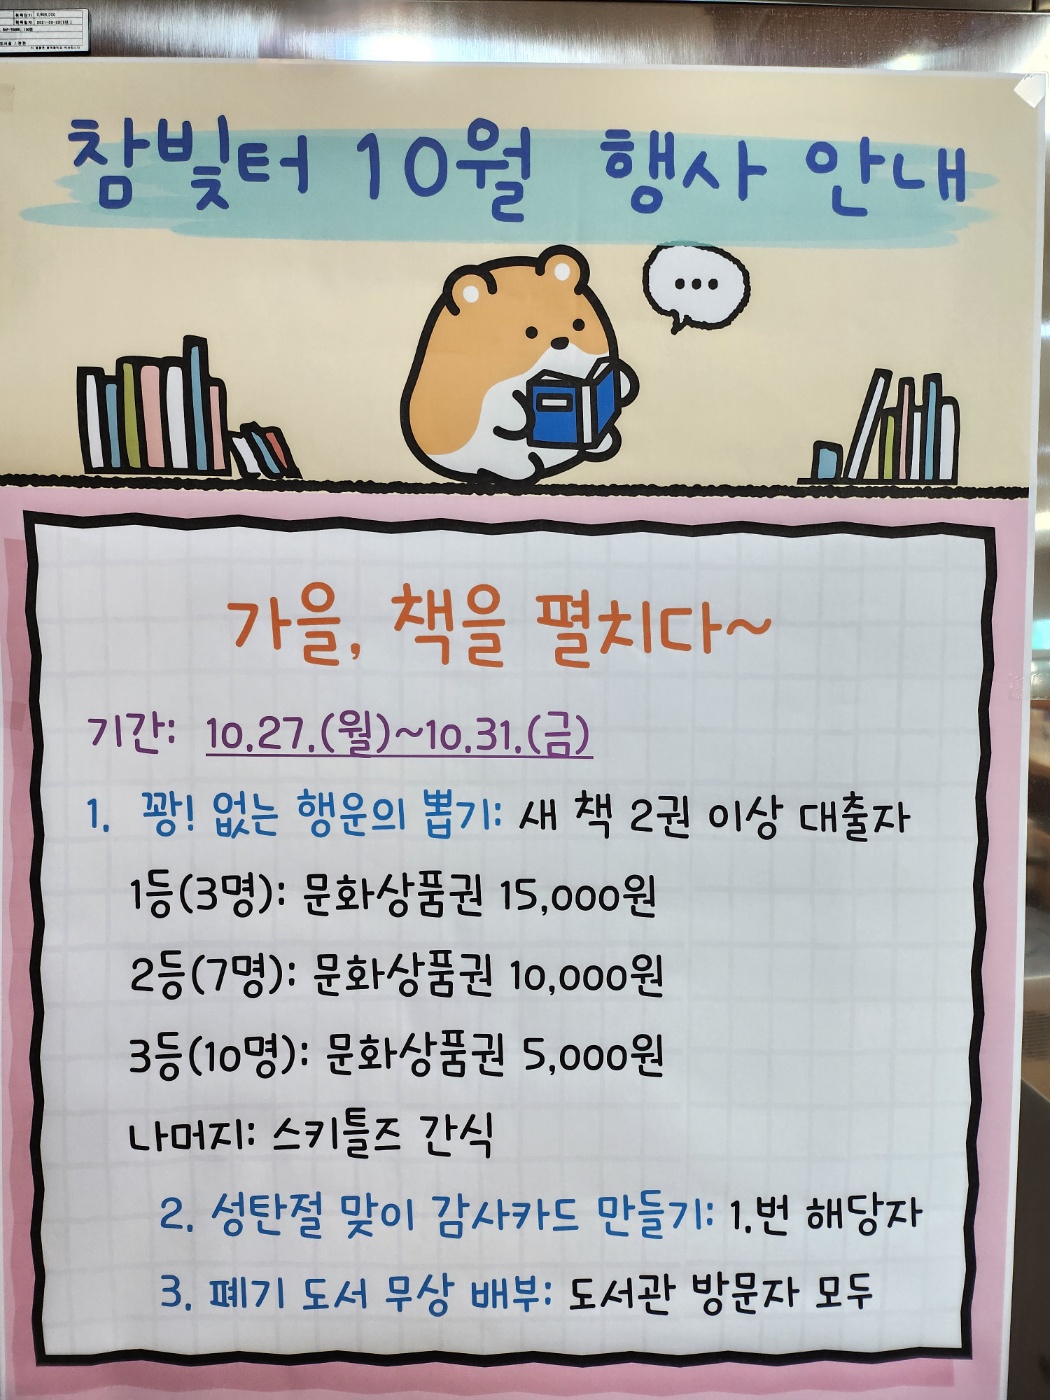 참빛터 10월 행사 안내
...
가을, 책을 펼치다~
기간: 10.27.(월)~10.31.(금)
1. 꽝! 없는 행운의 뽑기: 새 책 2권 이상 대출자
1등(3명): 문화상품권 15,000원
2등(7명): 문화상품권 10,000원
3등(10명): 문화상품권 5,000원
나머지: 스키틀즈 간식
2. 성탄절 맞이 감사카드 만들기: 1.번 해당자
3. 폐기 도서 무상 배부: 도서관 방문자 모두